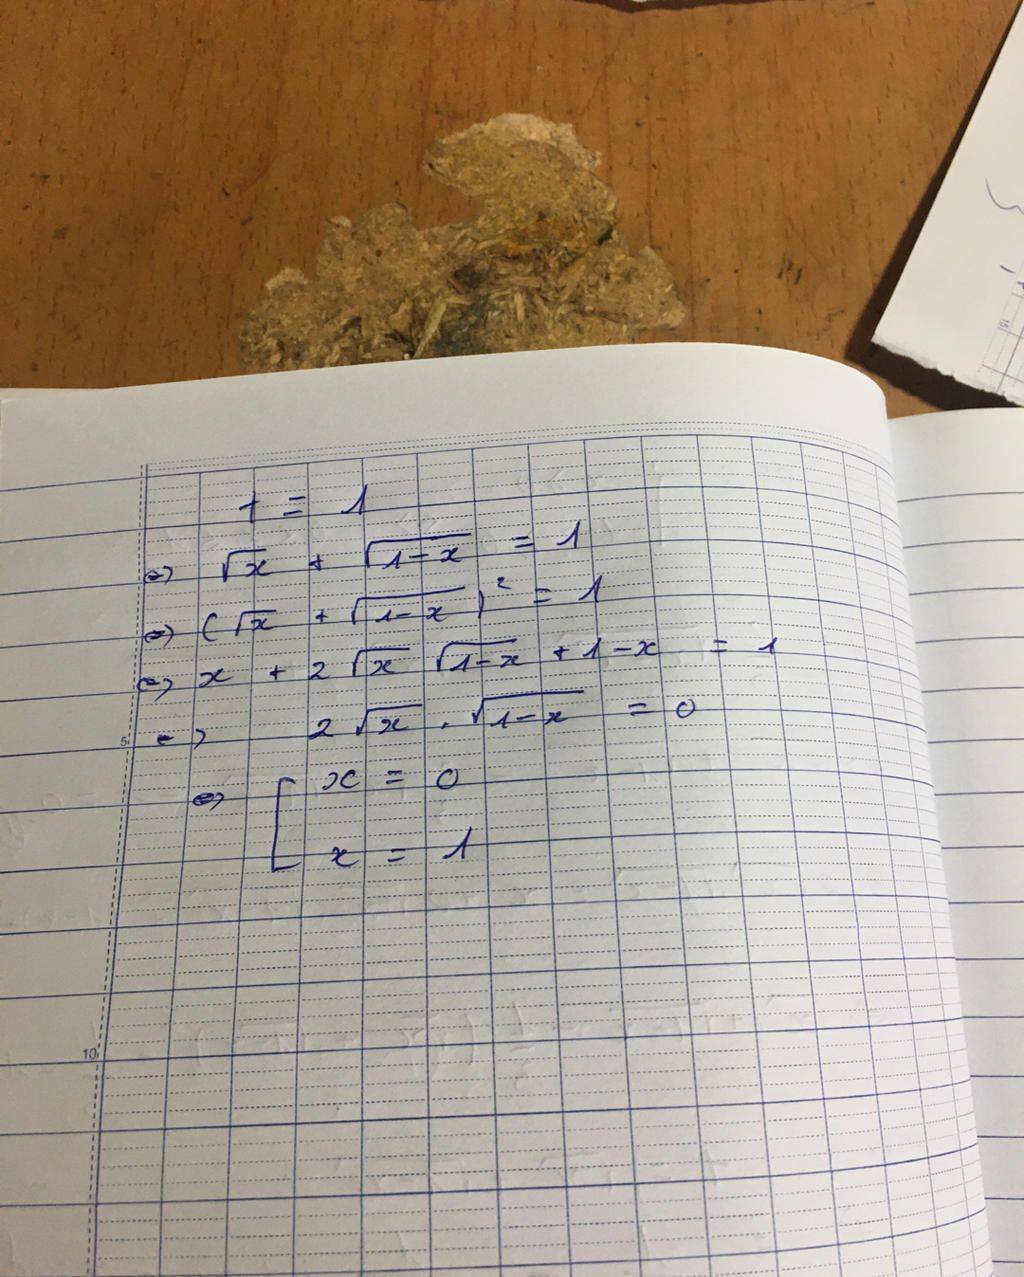 t = 1
⇔ √x + √(1-x) = 1
⇔ (√x + √(1-x))² = 1
⇔ x + 2√x √(1-x) + 1 - x = 1
⇔ 2√x . √(1-x) = 0
5
⇔ [ x = 0
x = 1
10
15